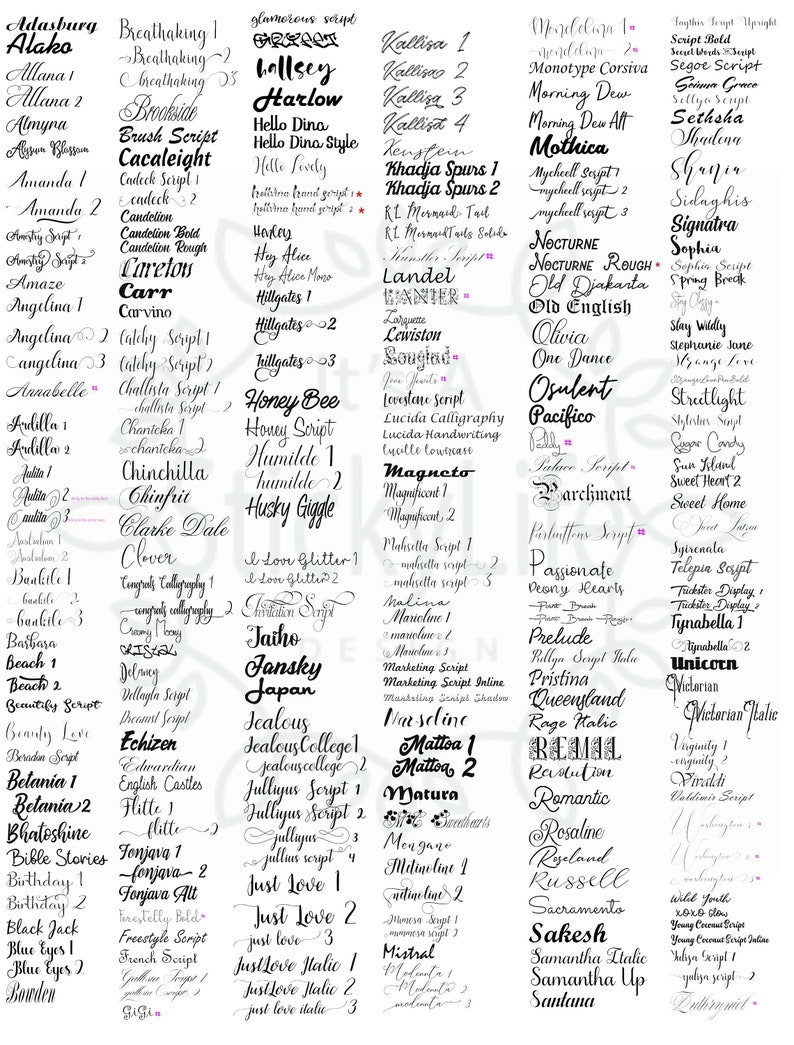 Adasburg
Alako
Allana 1
Allana 2
Almyna
Alyssum Blossom
Amanda 1
Amanda 2
Amestry Script 1
Amestry Script 2
Amaze
Angelina 1
Angelina 2
angelina 3
Annabelle #
Ardilla 1
Ardilla 2
Aulita 1
Aulita 2
aulita 3
Australian 1
Australian 2
Bankile 1
bankile 2
bankile 3
Barbara
Beach 1
Beach 2
Beautify Script
Beauty Love
Beradon Script
Betania 1
Betania 2
Bhatoshine
Bible Stories
Birthday 1
Birthday 2
Black Jack
Blue Eyes 1
Blue Eyes 2
Bowden
Breathaking 1
Breathaking 2
breathaking 3
Brookside
Brush Script
Cacaleight
Cadeck Script 1
cadeck 2
Candelion
Candelion Bold
Candelion Rough
Careton
Carr
Carvino
Catchy Script 1
Catchy Script 2
Challista Script 1
challista Script 2
Chanteka 1
chanteka 2
Chinchilla
Chinfrit
Clarke Dale
Clover
Congrats Calligraphy 1
congrats calligraphy 2
Creamy Moony
Cristal
Delaney
Dellayla Script
Dreamst Script
Echizen
Edwardian
English Castles
Flitte 1
flitte 2
Fonjava 1
fonjava 2
Fonjava Alt
Forestelly Bold #
Freestyle Script
French Script
Gallisia Script 1
gallisia Script 2
GiGi #
glamorous script
hallsey
Harlow
Hello Dina
Hello Dina Style
Hello Lovely
hollvina hand script 1 *
hollvina hand script 2 *
Harley
Hey Alice
Hey Alice Mono
Hillgates 1
Hillgates 2
hillgates 3
Honey Bee
Honey Script
Humilde 1
humilde 2
Husky Giggle
I Love Glitter 1
I Love Glitter 2
Invitation Script
Jaiho
Jansky
Japan
Jealous
JealousCollege 1
jealouscollege 2
Julliyus Script 1
Julliyus Script 2
julliyus 3
jullius script 4
Just Love 1
Just Love 2
just love 3
JustLove Italic 1
JustLove Italic 2
just love italic 3
Kallisa 1
Kallisa 2
Kallisa 3
Kallisa 4
Kenstein
Khadja Spurs 1
Khadja Spurs 2
KL Mermaid Tail
KL MermaidTails Solid
Kunstler Script #
Landel
Lanier #
Larquette
Lewiston
Love Hewits #
Lovestone Script
Lucida Calligraphy
Lucida Handwriting
Lucille Lowercase
Magneto
Magnificent 1
Magnificent 2
Mahsetta Script 1
mahsetta script 2
mahsetta script 3
Malina
Marioline 1
marioline 2
Marioline 3
Marketing Script
Marketing Script Inline
Marketing Script Shadow
Marseline
Mattoa 1
Mattoa 2
Matura
Sweethearts
Mengano
Mtinoline 1
mtinoline 2
Mimosa Script 1
mimmosa script 2
Mistral
Modenna 1
Modenna 2
modenna 3
Mondelina 1 #
mondelina 2 #
Monotype Corsiva
Morning Dew
Morning Dew Alt
Mothica
Mycheell Script 1
mycheell script 2
mycheell script 3
Nocturne
Nocturne Rough *
Old Djakarta
Old English
Olivia
One Dance
Osulent
Pacifico
Paddy #
Palace Script #
Parchment
Parlnttous Script #
Passionate
Peony Hearts
Point Break
Point Break Rough
Prelude
Prillya Script Italic
Pristina
Queensland
Rage Italic
Remil
Revolution
Romantic
Rosaline
Roseland
Russell
Sacramento
Sakesh
Samantha Italic
Samantha Up
Santana
Saythis Script Upright
Script Bold
Secret Words Script
Segoe Script
Seinna Grace
Sellya Script
Sethsha
Shailena
Shania
Sidaghis
Signatra
Sophia
Sophia Script
Spring Break
Stay Classy
Stay Wildly
Stephanie Jane
Strange Love
StrangeLovePenBold
Streetlight
Stylistius Script
Sugar Candy
Sun Island
Sweet Heart 2
Sweet Home
Sweet Latra
Syirenata
Telepia Script
Trickster Display 1
Trickster Display 2
Tynabella 1
tynabella 2
Unicorn
Victorian
Victorian Italic
Virginity 1
virginity 2
Vivaldi
Valdimir Script
Washington 1
Washington 2
washington 3
Wild Youth
XOXO Glow
Young Coconut Script
Young Coconut Script Inline
Yulisa Script 1
yulisa script 2
It's A
StickyLife
DESIGN